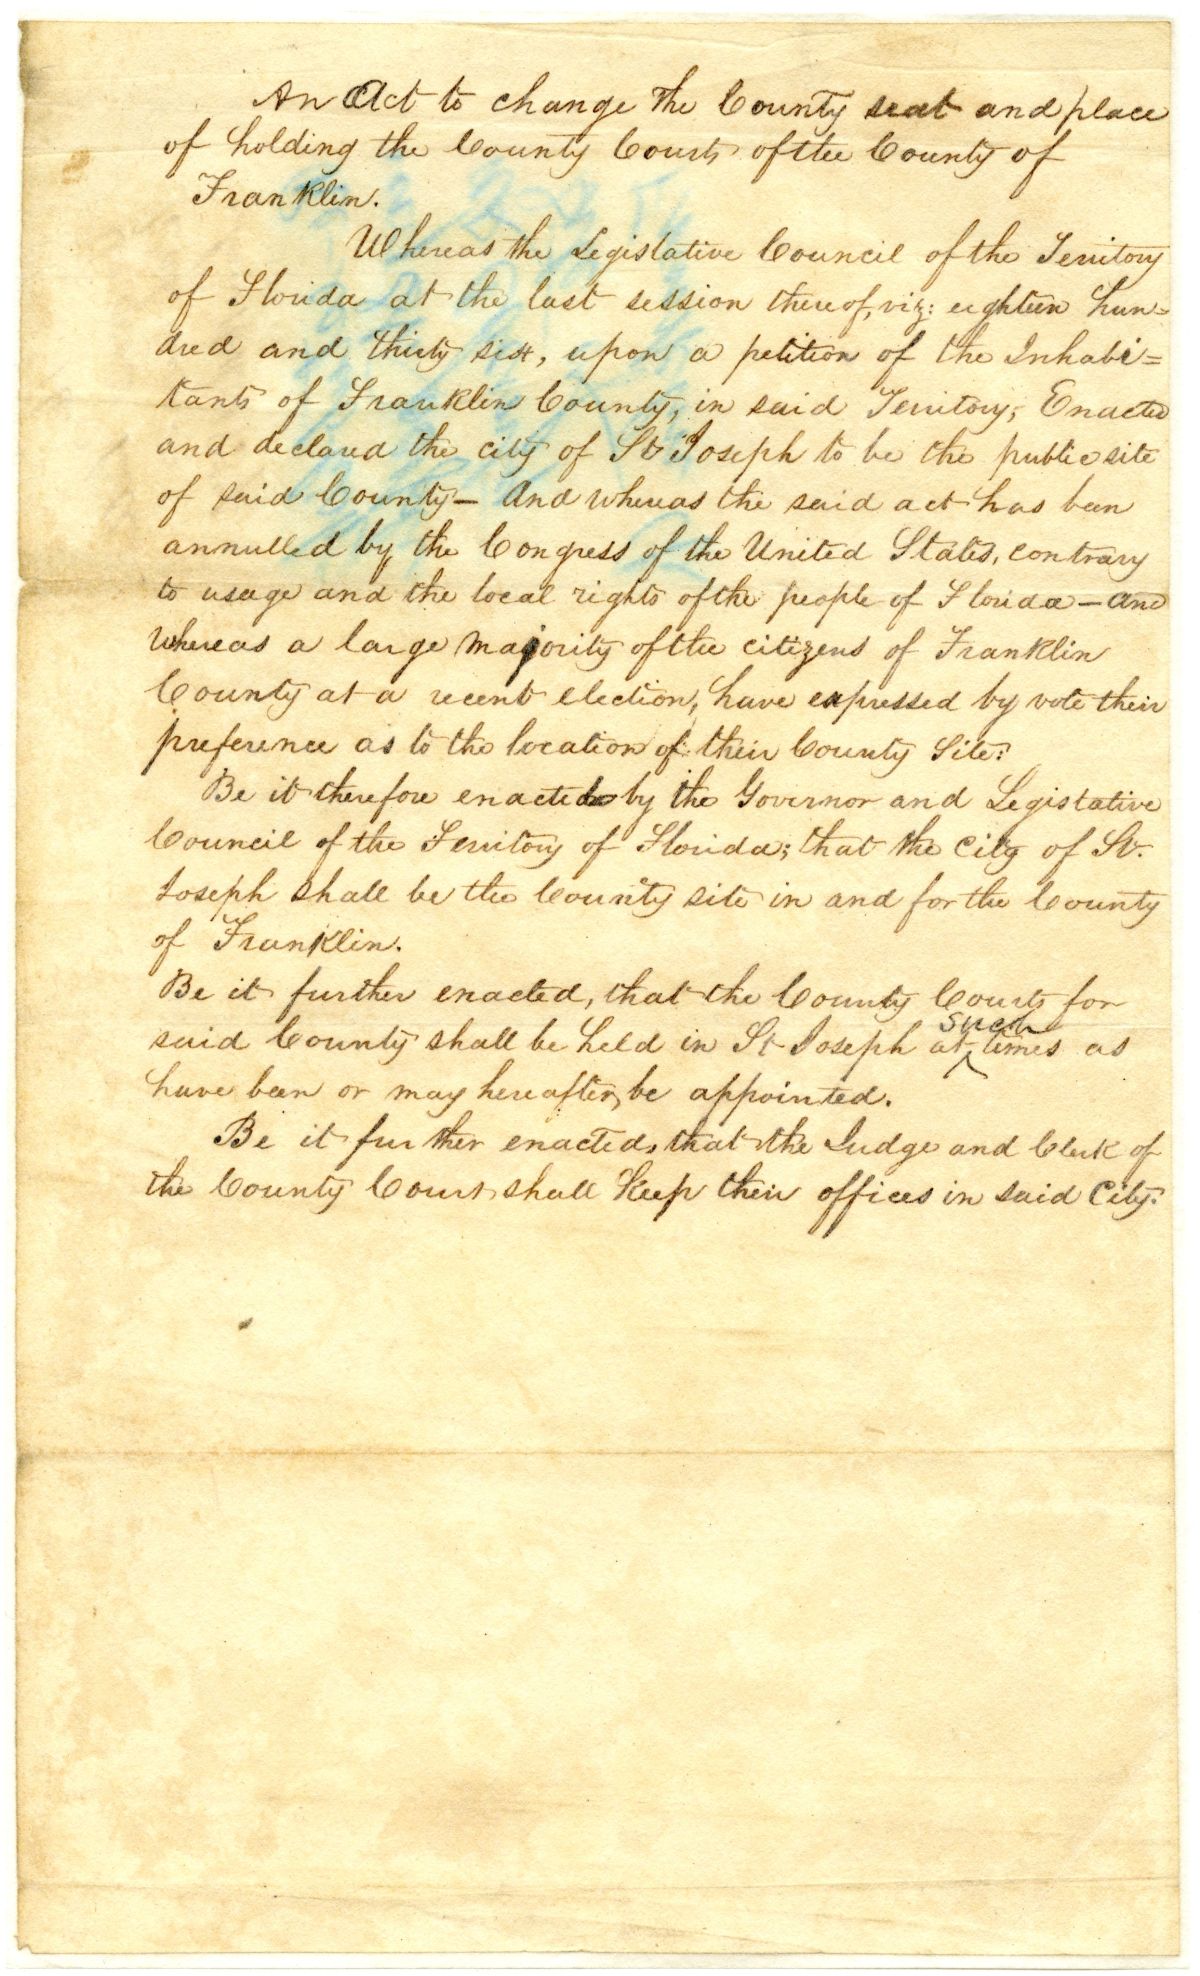 An Act to change the County seat and place
of holding the County Courts of the County of
Franklin.
Whereas the Legislative Council of the Territory
of Florida at the last session thereof, viz: eighteen hun=
dred and thirty six, upon a petition of the Inhabi=
tants of Franklin County, in said Territory, Enacted
and declared the city of St Joseph to be the public site
of said County— And whereas the said act has been
annulled by the Congress of the United States, contrary
to usage and the local rights of the people of Florida—and
whereas a large majority of the citizens of Franklin
County at a recent election, have expressed by vote their
preference as to the location of their County Site:
Be it therefore enacted by the Governor and Legislative
Council of the Territory of Florida; that the City of St.
Joseph shall be the County site in and for the County
of Franklin.
Be it further enacted, that the County Courts for
said County shall be held in St Joseph at such times as
have been or may hereafter, be appointed.
Be it further enacted, that the Judge and Clerk of
the County Court shall keep their offices in said City.